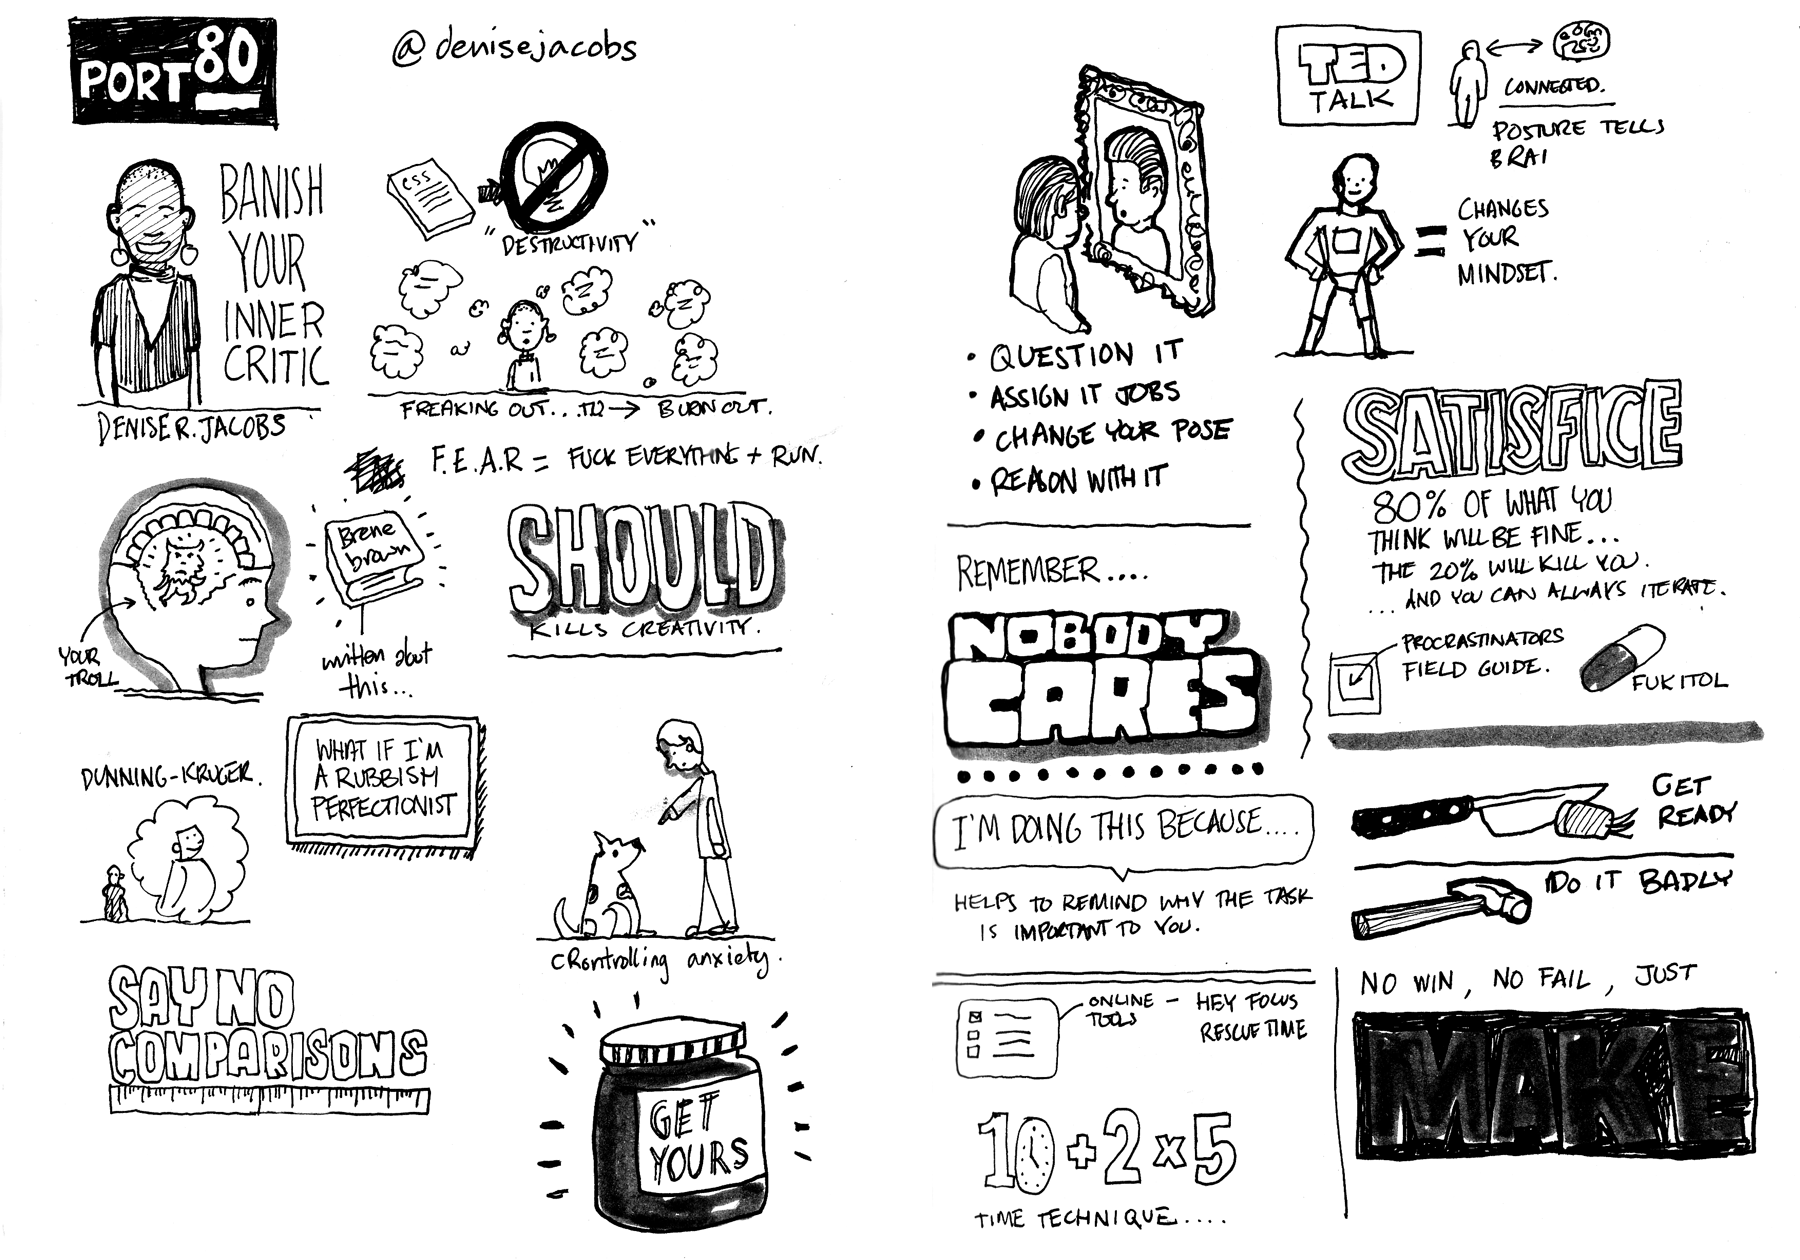 PORT 80
@denisejacobs
BANISH
YOUR
INNER
CRITIC
DENISE R. JACOBS
CSS
"DESTRUCTIVITY"
FREAKING OUT... → BURNOUT.
F.E.A.R = FUCK EVERYTHING + RUN.
YOUR
TROLL
Brene
brown
written about
this...
SHOULD
KILLS CREATIVITY.
DUNNING-KRUGER.
WHAT IF I'M
A RUBBISH
PERFECTIONIST
CRontrolling anxiety.
SAY NO
COMPARISONS
GET
YOURS
• QUESTION IT
• ASSIGN IT JOBS
• CHANGE YOUR POSE
• REASON WITH IT
REMEMBER....
NOBODY
CARES
I'M DOING THIS BECAUSE....
HELPS TO REMIND WHY THE TASK
IS IMPORTANT TO YOU.
ONLINE - HEY FOCUS
TOOLS RESCUE TIME
10 + 2 x 5
TIME TECHNIQUE....
TED
TALK
CONNECTED.
POSTURE TELLS
BRAI
= CHANGES
YOUR
MINDSET.
SATISFICE
80% OF WHAT YOU
THINK WILL BE FINE...
THE 20% WILL KILL YOU.
... AND YOU CAN ALWAYS ITERATE.
PROCRASTINATORS
FIELD GUIDE.
FUKITOL
GET
READY
DO IT BADLY
NO WIN, NO FAIL, JUST
MAKE